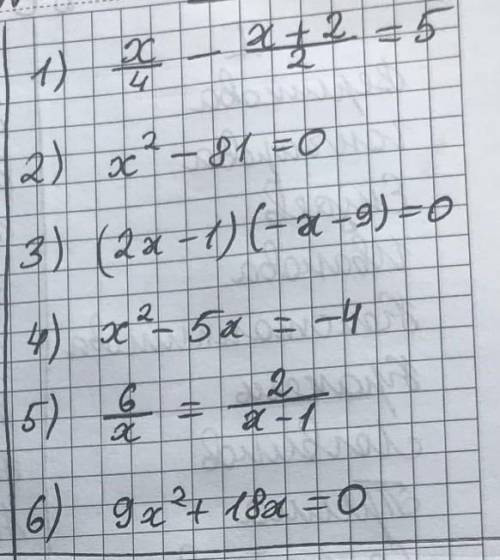 1) x/4 - (x+2)/2 = 5
2) x² - 81 = 0
3) (2x - 1)(-x - 9) = 0
4) x² - 5x = -4
5) 6/x = 2/(x-1)
6) 9x² + 18x = 0